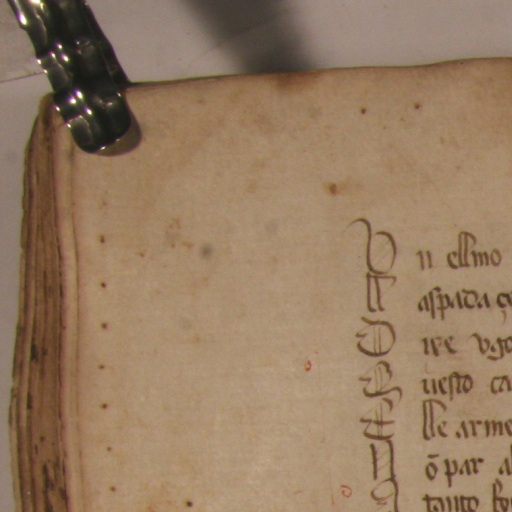 V n ellmo
L aspada ce
D ire vgo
Q uesto ca
E lle arme
N ō par al
T anto fo